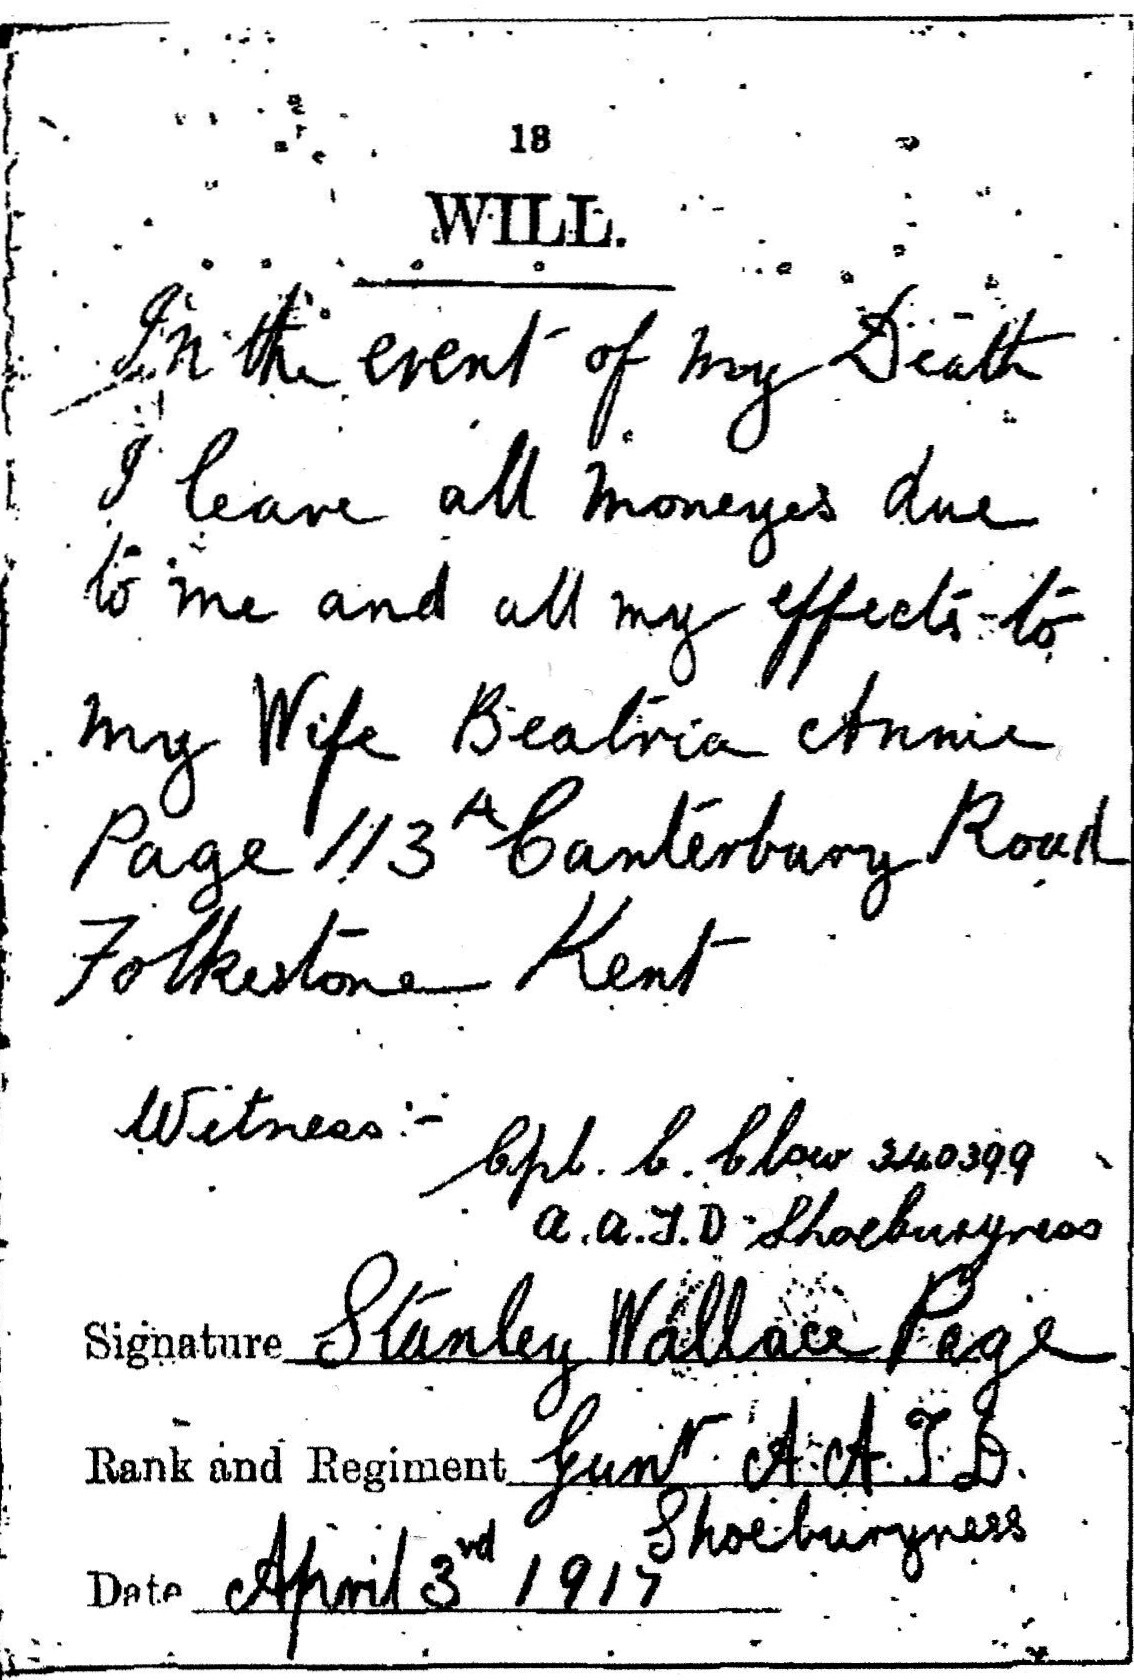 18
WILL.
In the event of my Death
I leave all moneyes due
to me and all my effects to
my Wife Beatria Annie
Page 113A Canterbury Road
Folkestone Kent
Witness :-
Cpl. C. Clow 340399
A.A.T.D. Shoeburyness
Signature Stanley Wallace Page
Rank and Regiment Gunr A A T D.
Shoeburyness
Date April 3rd 1917